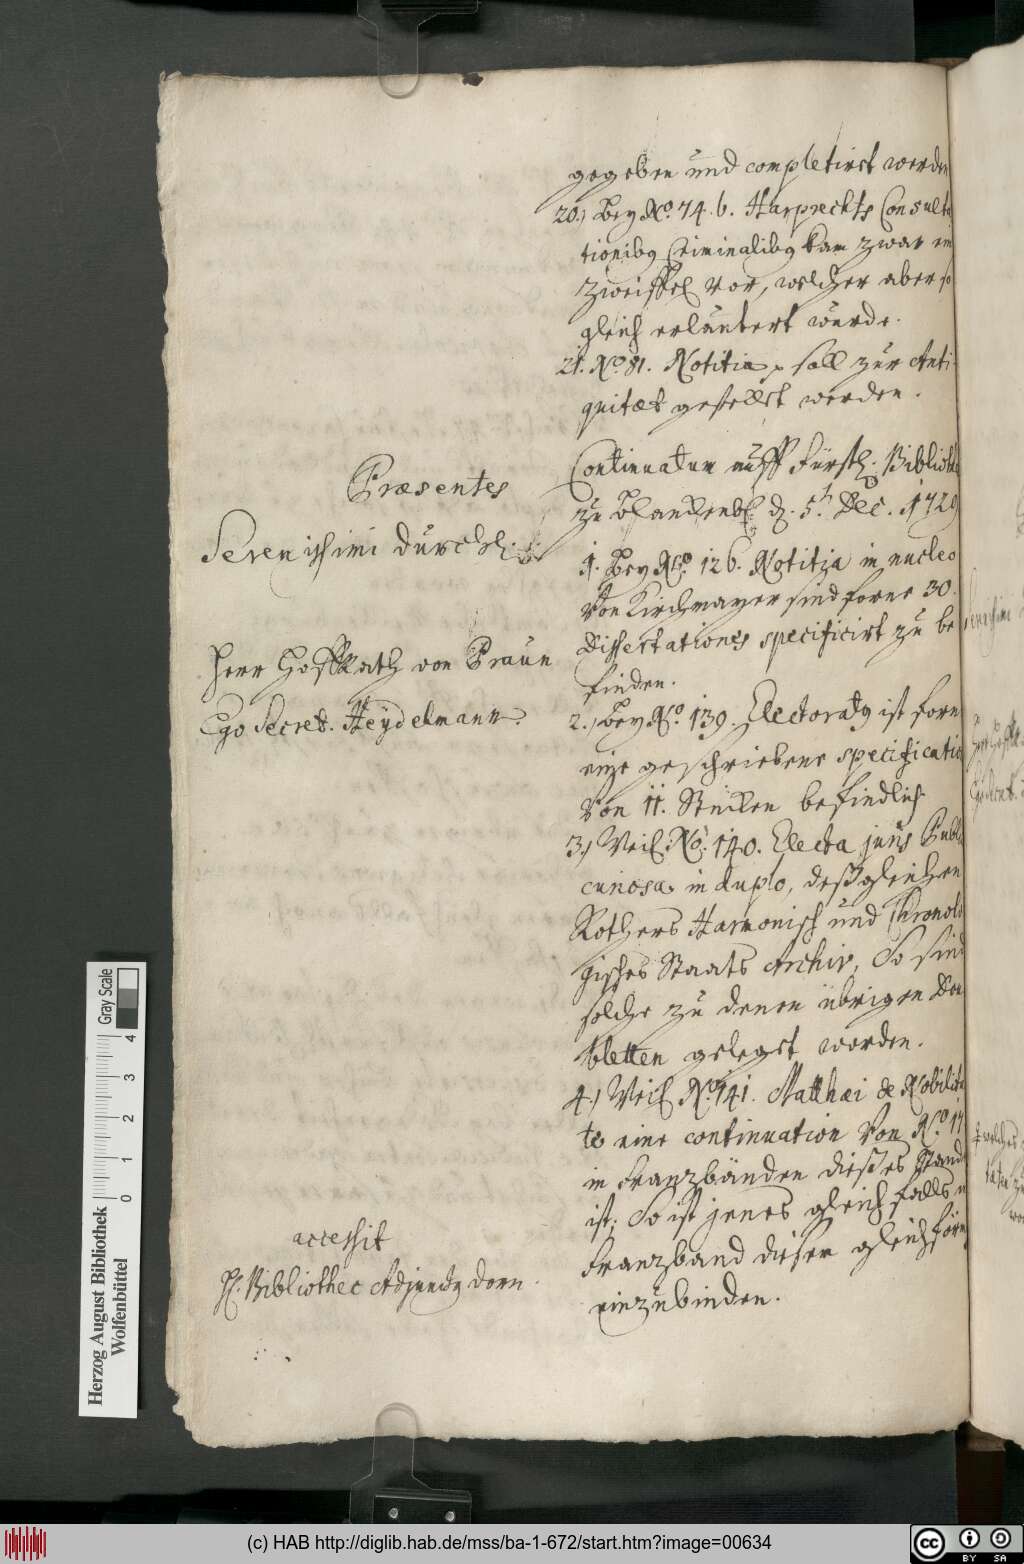 gegeben und completirt werden
20.) Bey No. 74. b. Harprechts Consulta
tionibg Criminalibg kam zwar ein
Zweiffel vor, welcher aber so
gleich erläutert wurde.
21. No. 81. Notitia soll zur Anti-
quitæt gestellet werden.
Continuatum auff Fürstl. Bibliothec
zu Blanckenb. d. 5t. Dec. 1729
Præsentes
Serenissimi Durchl.
Herr HoffRath von Praun
Ego Secret. Heydelmann.
1. Bey No. 126. Notitia in nucleo
Von Kirchmayer sind forne 30.
Dissertationes specificirt zu be
finden.
2.) Bey No. 139. Electoratg ist forn
eine geschriebene specificatio
Von 11. Stücken befindlich
3.) Weil No. 140. Electa juris Publ.
curiosa in duplo, deßgleichen
Rothers Harmonisch und Chronolo
gisches Staats Archiv, So sind
solche zu denen übrigen Dou
bletten geleget worden.
4.) Weil No. 141. Matthæi de Nobilita
te eine continuation Von No. 17
in Franzbänden dießes Stand
ist; So ist jenes gleichfalls in
Franzband dieser gleichförm
einzubinden.
accessit
H. Bibliothec Adjunctg Dorn.
Herzog August Bibliothek
Wolfenbüttel
0 1 2 3 4
Gray Scale
(c) HAB http://diglib.hab.de/mss/ba-1-672/start.htm?image=00634
cc BY SA